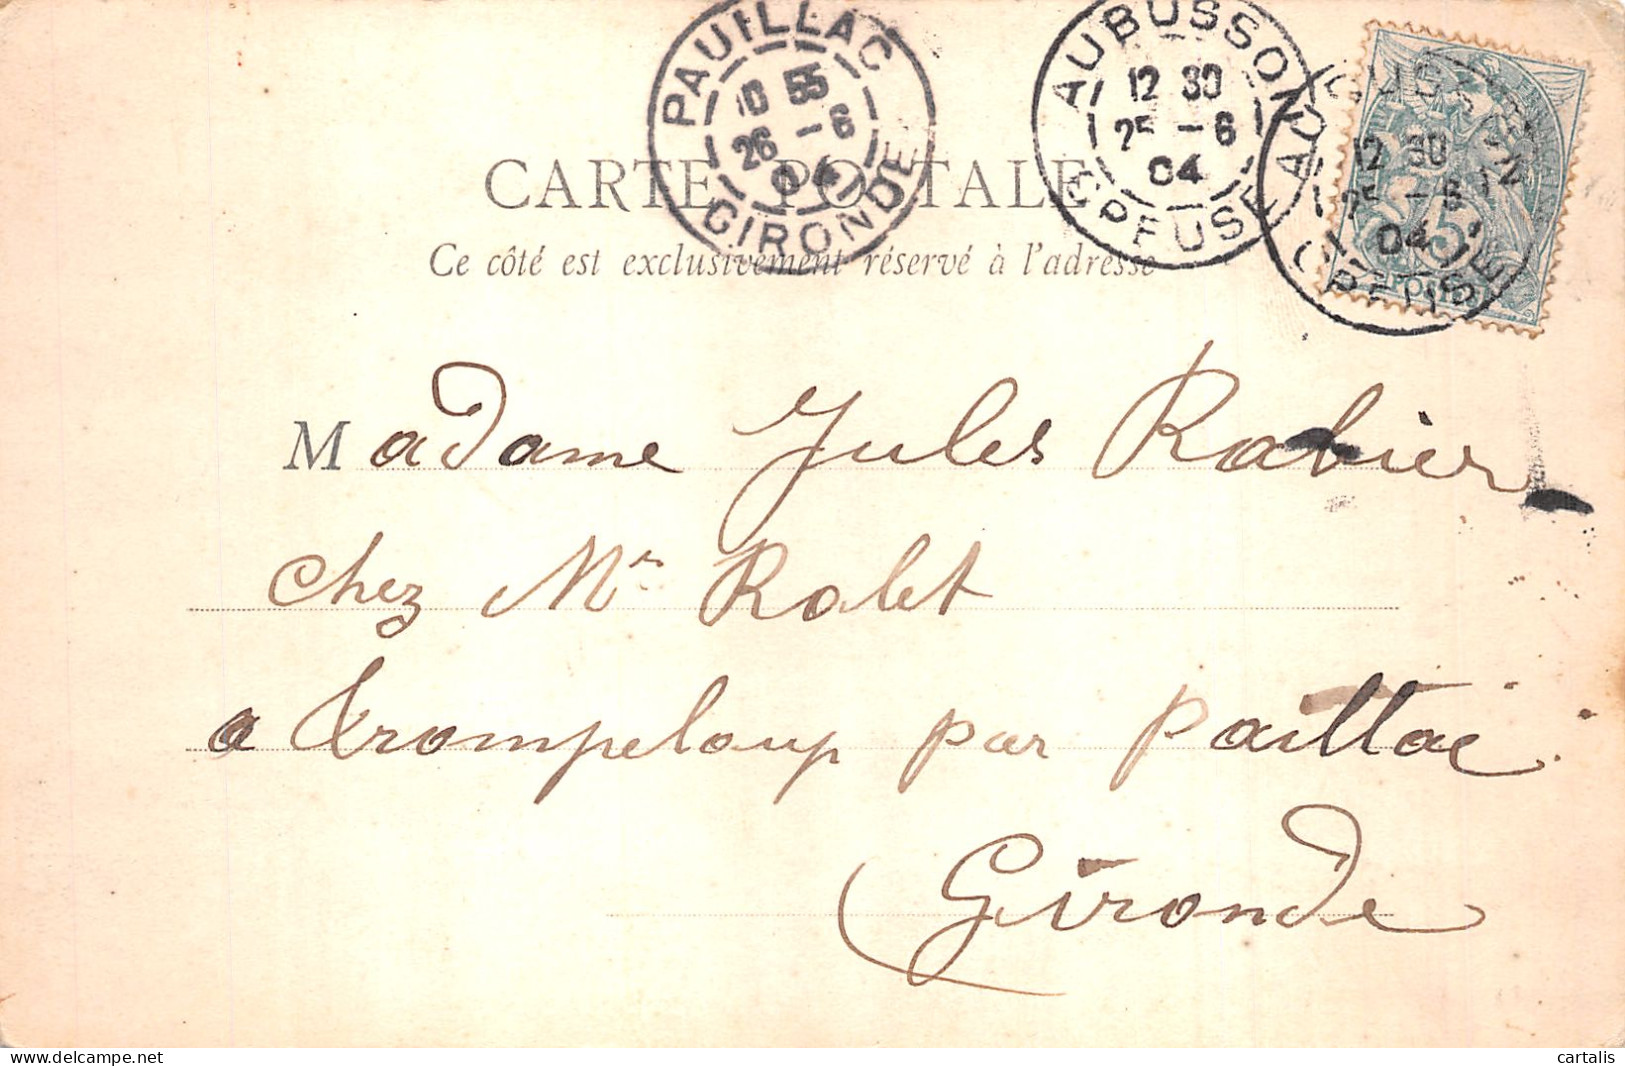 PAUILLAC
10 55
26 - 6
04
GIRONDE
AUBUSSON
12 30
25 - 6
04
CREUSE
12 30
25 - 6
04
CREUSE
CARTE POSTALE
Ce côté est exclusivement réservé à l'adresse
Madame Jules Rabier
chez Mr Ralet
a Trompeloup par Paillac
Gironde
cartalis